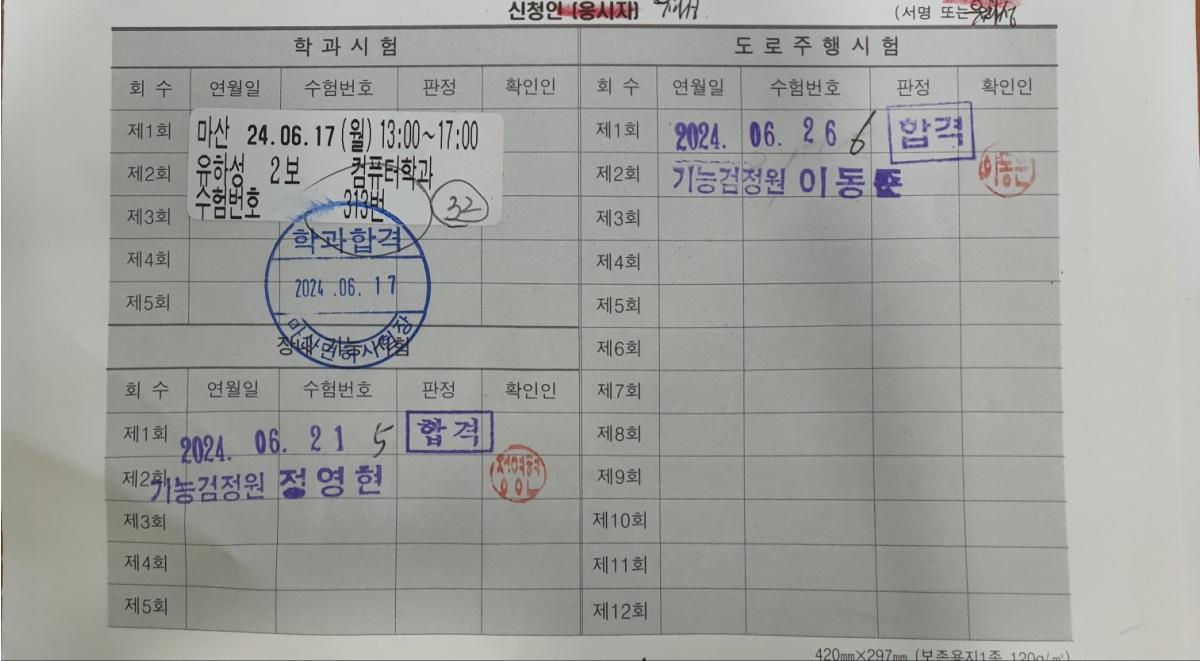 신청인 (응시자)
(서명 또는
학 과 시 험
회 수 연월일 수험번호 판정 확인인
제1회
마산 24.06.17 (월) 13:00~17:00
제2회
유하성 2보 컴퓨터학과
수험번호 313번 32
제3회
학과합격
제4회
2024.06.17
제5회
장내 기능 시험
회 수 연월일 수험번호 판정 확인인
제1회 2024. 06. 21 5 합격
제2회
기능검정원 정영현
제3회
제4회
제5회
도 로 주 행 시 험
회 수 연월일 수험번호 판정 확인인
제1회 2024. 06. 26 6 합격
제2회
기능검정원 이동
제3회
제4회
제5회
제6회
제7회
제8회
제9회
제10회
제11회
제12회
420㎜×297㎜ (보존용지1종 120g/㎡)